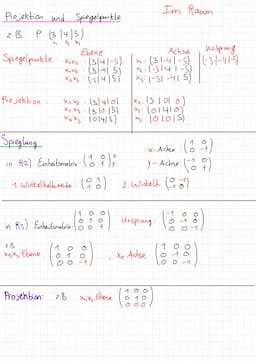 Projektion und Spiegelpunkte Im Raum
z.B P (3|4|5)
x₁ x₂ x₃
Ebene Achse Ursprung
Spiegelpunkte: x₁x₂: (3|4|-5) x₁: (3|-4|-5) (-3|-4|-5)
x₁x₃: (3|-4|5) x₂: (-3|4|-5)
x₂x₃: (-3|4|5) x₃: (-3|-4|5)
Projektion: x₁x₂: (3|4|0) x₁: (3|0|0)
x₁x₃: (3|0|5) x₂: (0|4|0)
x₂x₃: (0|4|5) x₃: (0|0|5)
Spieglung
in R2) Einheitsmatrix: (1 0) x x-Achse: (1 0)
(0 1) y (0 -1)
y-Achse: (-1 0)
(0 1)
1. Winkelhalbierende: (0 1) 2. Winkelh. (0 -1)
(1 0) (-1 0)
in R3) Einheitsmatrix: (1 0 0) Ursprung: (-1 0 0)
(0 1 0) (0 -1 0)
(0 0 1) (0 0 -1)
z.B
x₁x₂ Ebene: (1 0 0) , x₁ Achse: (1 0 0)
(0 1 0) (0 -1 0)
(0 0 -1) (0 0 -1)
Projektion: z.B. x₁x₂ Ebene (1 0 0)
(0 1 0)
(0 0 0)